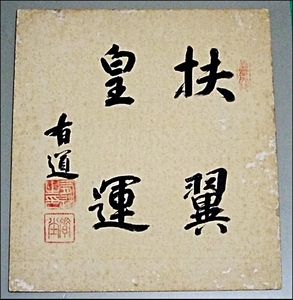 扶翼
皇運
有道